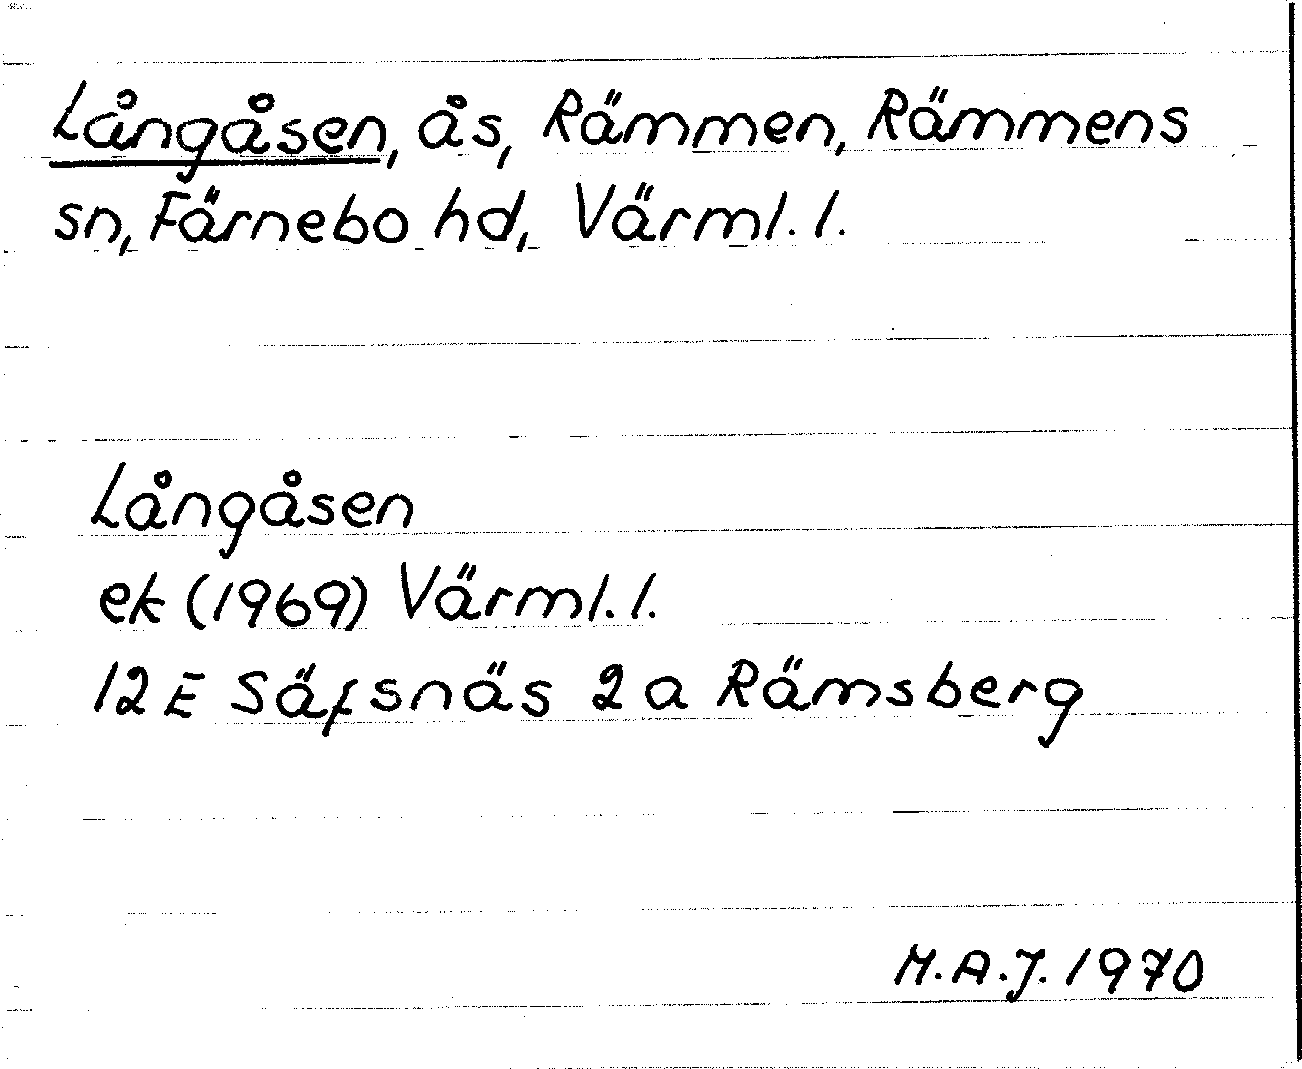 Långåsen, ås, Rämmen, Rämmens
sn, Färnebo hd, Värml. l.
Långåsen
ek (1969) Värml. l.
12 E Säfsnäs 2 a Rämsberg
M.A.J. 1970